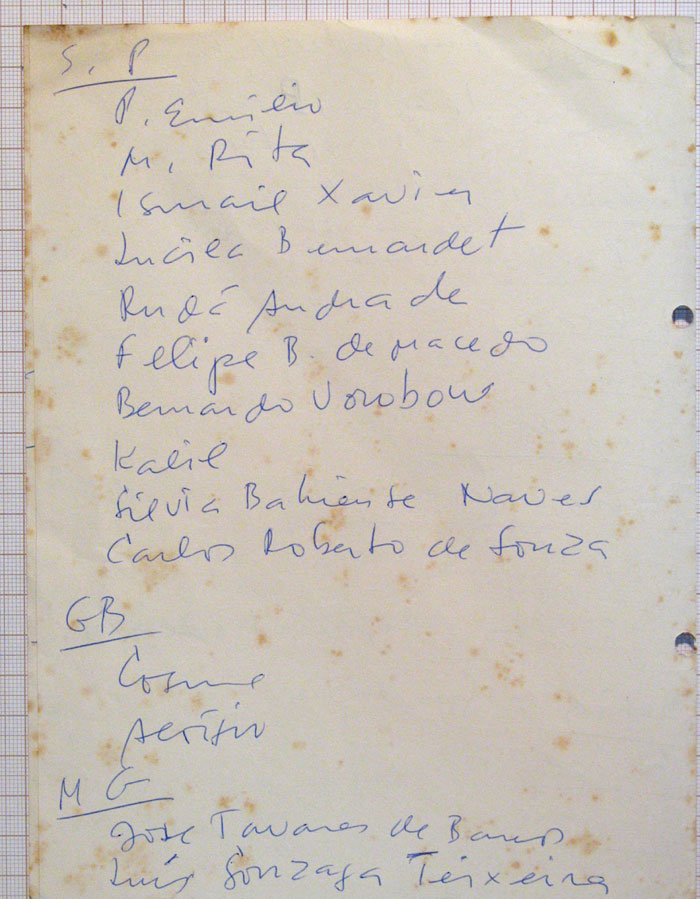 S. P
P. Emilio
M. Rita
Ismail Xavier
Lucila Bernardet
Rudá Andrade
Felipe B. de Macedo
Bernardo Vorobow
Kalil
Silvia Bahiense Naves
Carlos Roberto de Souza
GB
Cosme
Aloísio
M G
José Tavares de Barros
Luís Gonzaga Teixeira